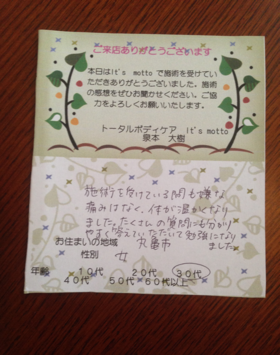 ご来店ありがとうございます
本日はIt's motto で施術を受けてい
ただきありがとうございました。施術
の感想をぜひお聞かせください。ご協
力をよろしくお願いいたします。
トータルボディケア It's motto
泉本 大樹
施術を受けている間も嫌な
痛みはなく、体が温かくなり
ました。たくさんの質問にも分かり
やすく答えていただいて勉強になり
ました。
お住まいの地域 丸亀市
性別 女
年齢 10代 20代 30代
40代 50代 60代以上